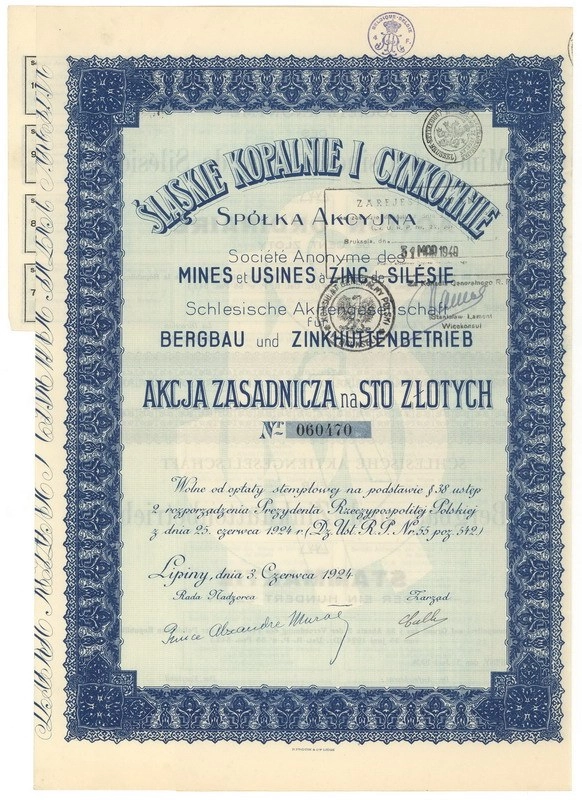 BELGIQUE-BELGIE
ŚLĄSKIE KOPALNIE I CYNKOWNIE
SPÓŁKA AKCYJNA
Société Anonyme des
MINES et USINES à ZINC de SILÉSIE
Schlesische Aktiengesellschaft
für
BERGBAU und ZINKHÜTTENBETRIEB
Bruksela, dn.
31 1948
Generalnego R. P.
Stanisław Lamont
Wicekonsul
AKCJA ZASADNICZA na STO ZŁOTYCH
Nr. 060470
Wolne od opłaty stemplowej na podstawie § 38 ustęp
2 rozporządzenia Prezydenta Rzeczypospolitej Polskiej
z dnia 25. czerwca 1924 r. (Dz. Ust. R. P. Nr. 55 poz. 542)
Lipiny, dnia 3. Czerwca 1924
Rada Nadzorcza Zarząd
Prince Alexandre Murat
8
7